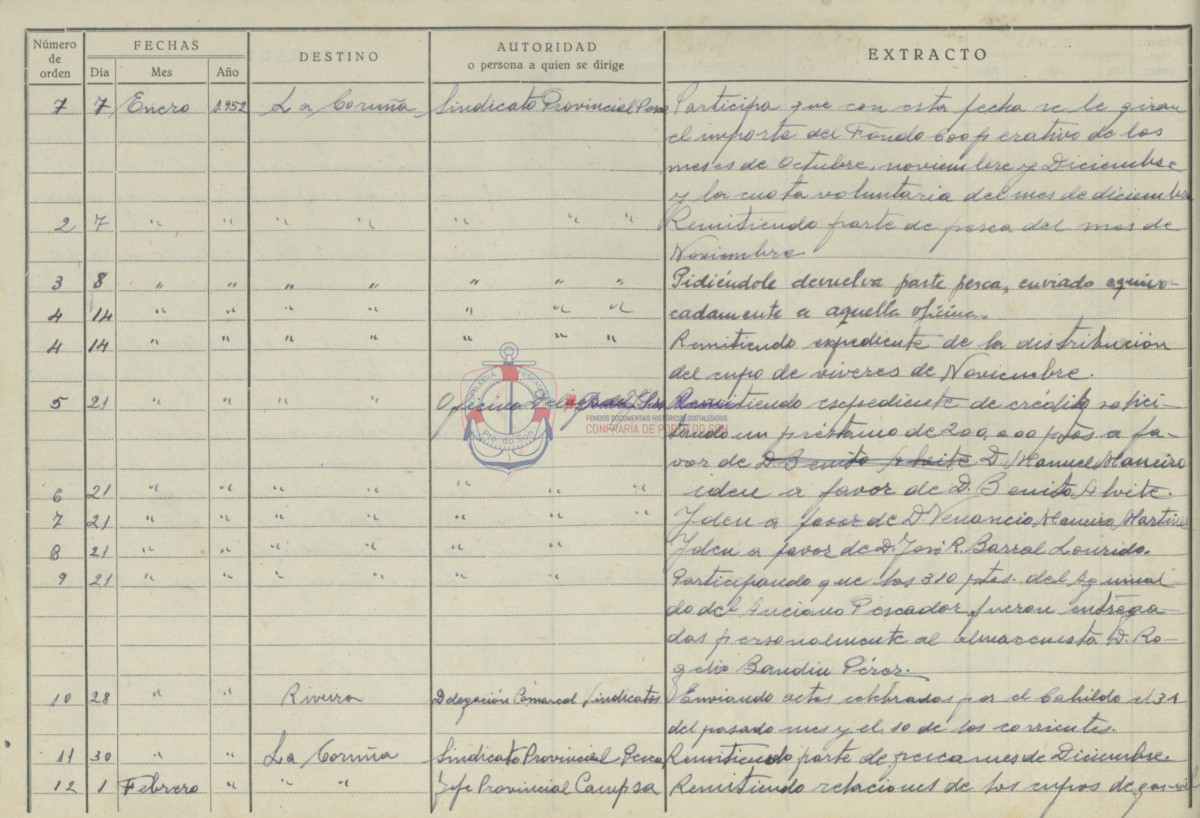 Número de orden FECHAS DESTINO AUTORIDAD o persona a quien se dirige EXTRACTO
Día Mes Año
7 7 Enero 1.952 La Coruña Sindicato Provincial Pesca Participa que con esta fecha se le giran
el importe del Fondo Cooperativo de los
meses de Octubre, noviembre y Diciembre
y la cuota voluntaria del mes de diciembre
2 7 " " " " " " " Remitiendo parte de pesca del mes de
Noviembre
3 8 " " " " " " " Pidiéndole devuelva parte pesca, enviado equivo-
4 14 " " " " " " " cadamente a aquella oficina.
4 14 " " " " " " " Remitiendo expediente de la distribución
del cupo de víveres de Noviembre.
5 21 " " " " Oficina Remitiendo expediente de crédito solici-
tando un préstamo de 200.000 ptas. a fa-
vor de D Benito Aheite D. Manuel Maneiro
6 21 " " " " " " " iden a favor de D. Benito Aheite.
7 21 " " " " " " " Yden a favor de D Venancio Maneiro Martinez
8 21 " " " " " " Yden a favor de D. José R. Barral Lourido.
9 21 " " " " " " Participando que las 310 ptas. del Aguinal-
do del Anciano Pescador, fueron entrega-
das personalmente al almacenista D. Ro-
gelio Bandin Pérez.
10 28 " " Riveira Delegación Comarcal Sindicatos Enviando actas celebradas por el Cabildo el 31
del pasado mes y el 10 de los corrientes.
11 30 " " La Coruña Sindicato Provincial Pesca Remitiendo parte de pesca mes de Diciembre.
12 1 Febrero " " " Jefe Provincial Campsa Remitiendo relaciones de los cupos de gas-oil
COFRADÍA PESCADORES
Pto. do Son
FONDOS DOCUMENTAIS HISTÓRICOS DIGITALIZADOS
CONFRARÍA DE PORTO DO SON